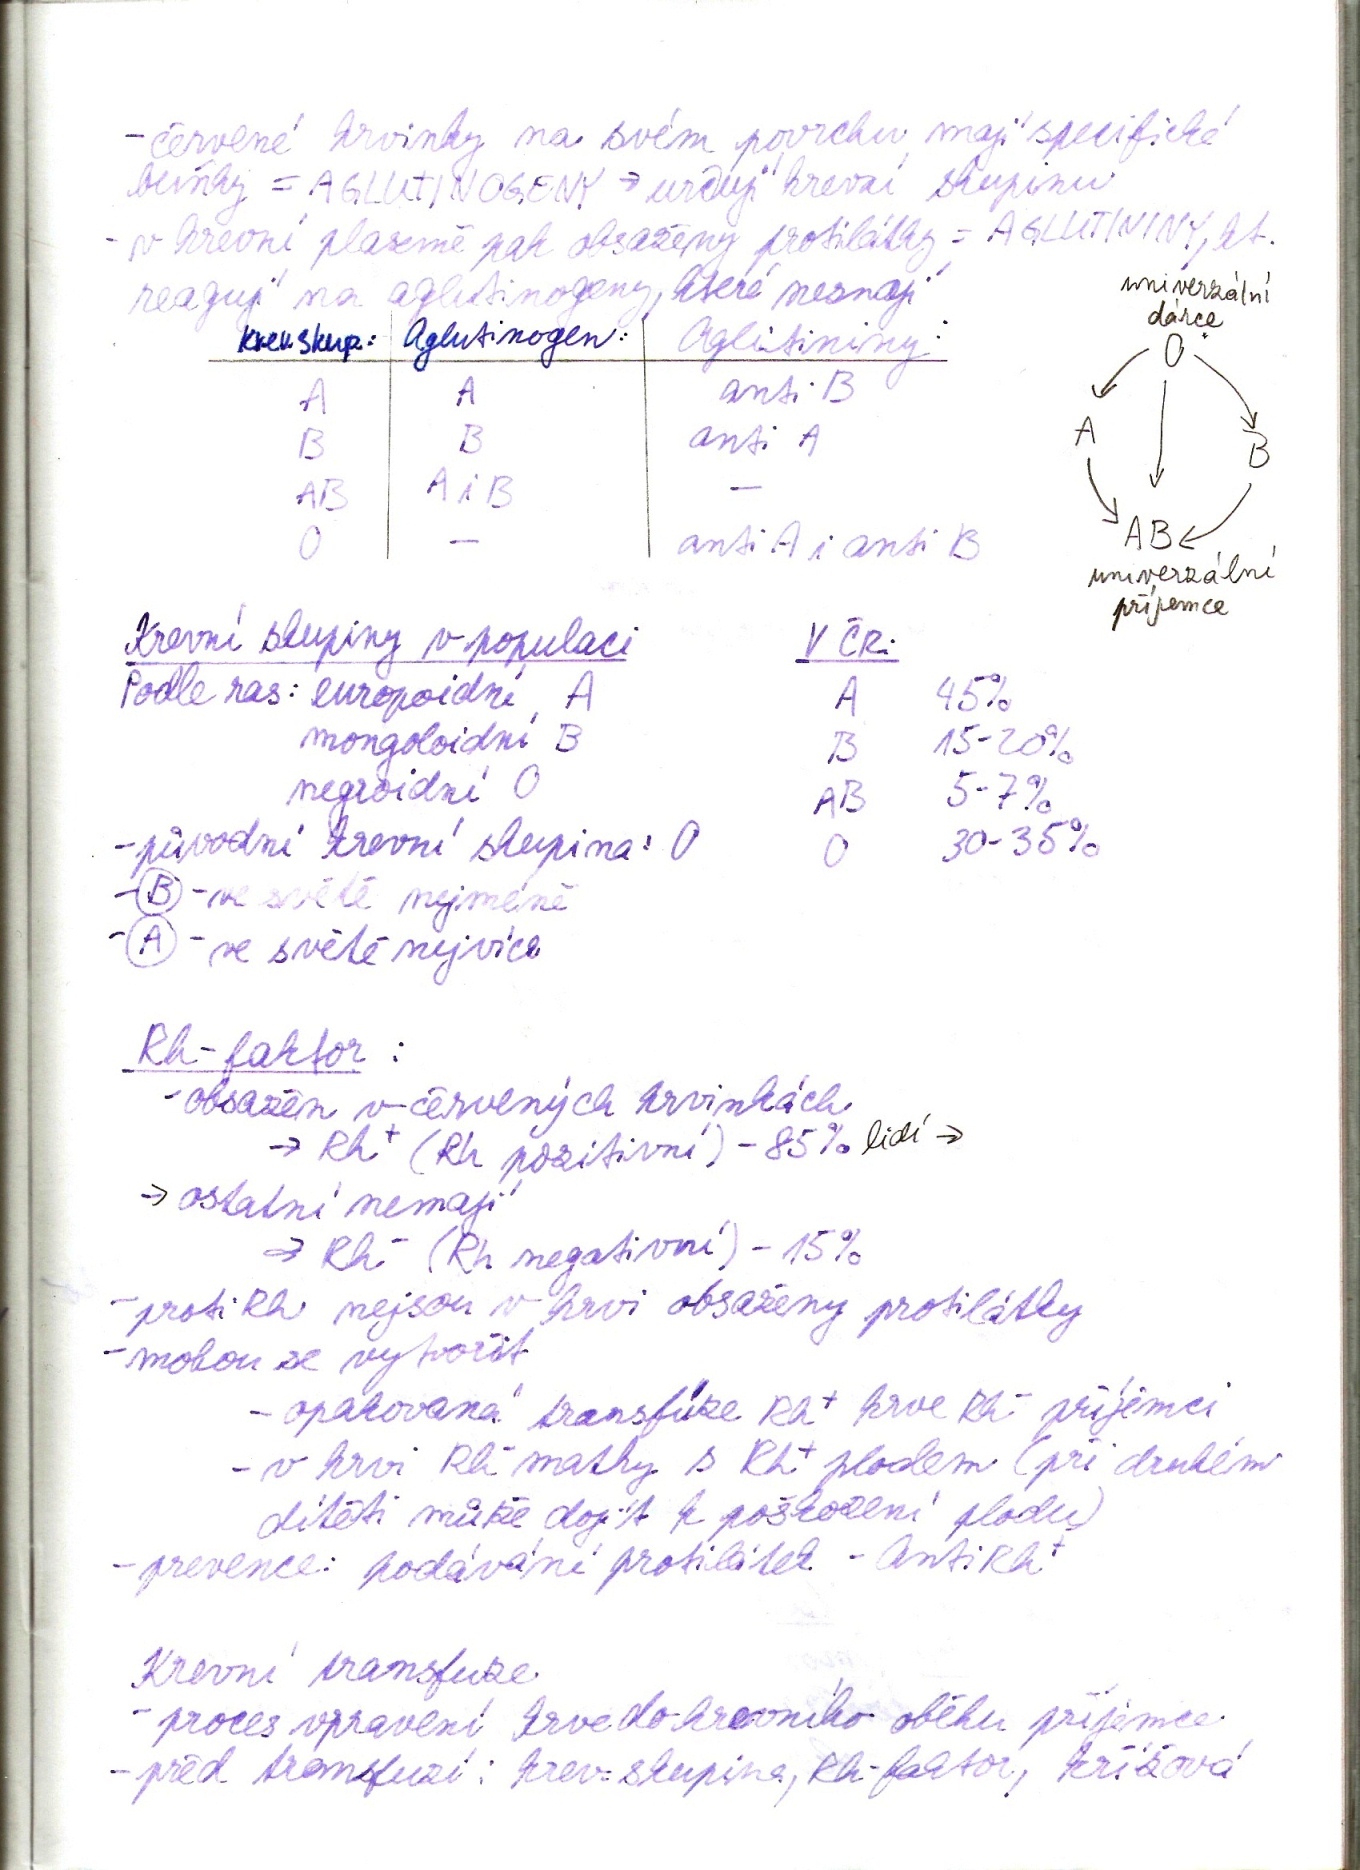 - červené krvinky na svém povrchu mají specifické
buňky = AGLUTINOGENY → určují krevní skupinu
- v krevní plazmě pak obsaženy protilátky = AGLUTININY, kt.
reagují na aglutinogeny, které neznají
krev. skup.: Aglutinogen: Aglutininy:
A A anti B
B B anti A
AB A i B —
O — anti A i anti B
univerzální
dárce
O
A B
AB
univerzální
příjemce
Krevní skupiny v populaci
Podle ras: europoidní A
mongoloidní B
negroidní O
- původní krevní skupina: O
- B - ve světě nejméně
- A - ve světě nejvíce
V ČR:
A 45%
B 15-20%
AB 5-7%
O 30-35%
Rh-faktor:
- obsažen v červených krvinkách
→ Rh⁺ (Rh pozitivní) - 85% lidí →
→ ostatní nemají
→ Rh⁻ (Rh negativní) - 15%
- proti Rh nejsou v krvi obsaženy protilátky
- mohou se vytvořit
- opakovaná transfúze Rh⁺ krve Rh⁻ příjemci
- v krvi Rh⁻ matky s Rh⁺ plodem (při druhém
dítěti může dojít k poškození plodu)
- prevence: podávání protilátek - AntiRh⁺
Krevní transfuze
- proces vpravení krve do krevního oběhu příjemce
- před transfuzí: krev. skupina, Rh-faktor, křížová